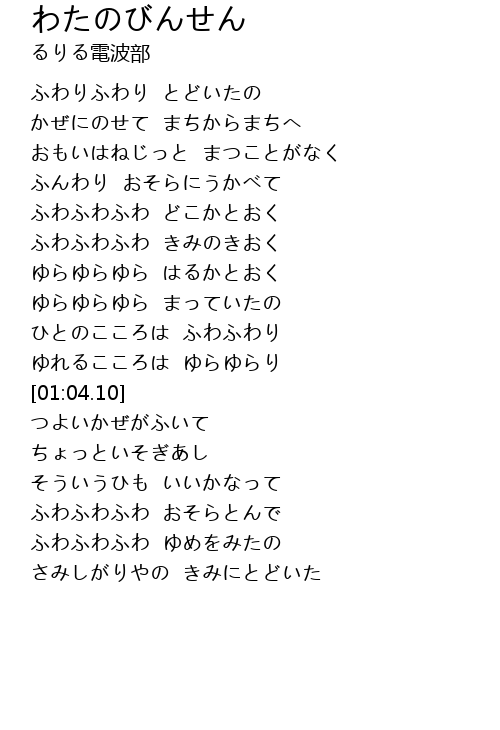 わたのびんせん
るりる電波部
ふわりふわり とどいたの
かぜにのせて まちからまちへ
おもいはねじっと まつことがなく
ふんわり おそらにうかべて
ふわふわふわ どこかとおく
ふわふわふわ きみのきおく
ゆらゆらゆら はるかとおく
ゆらゆらゆら まっていたの
ひとのこころは ふわふわり
ゆれるこころは ゆらゆらり
[01:04.10]
つよいかぜがふいて
ちょっといそぎあし
そういうひも いいかなって
ふわふわふわ おそらとんで
ふわふわふわ ゆめをみたの
さみしがりやの きみにとどいた